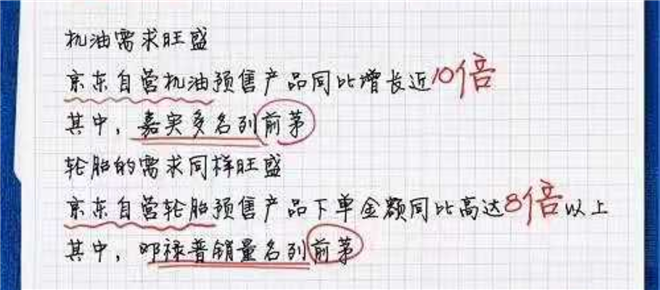 机油需求旺盛
京东自营机油预售产品同比增长近10倍
其中，嘉实多名列前茅
轮胎的需求同样旺盛
京东自营轮胎预售产品下单金额同比高达8倍以上
其中，邓禄普销量名列前茅